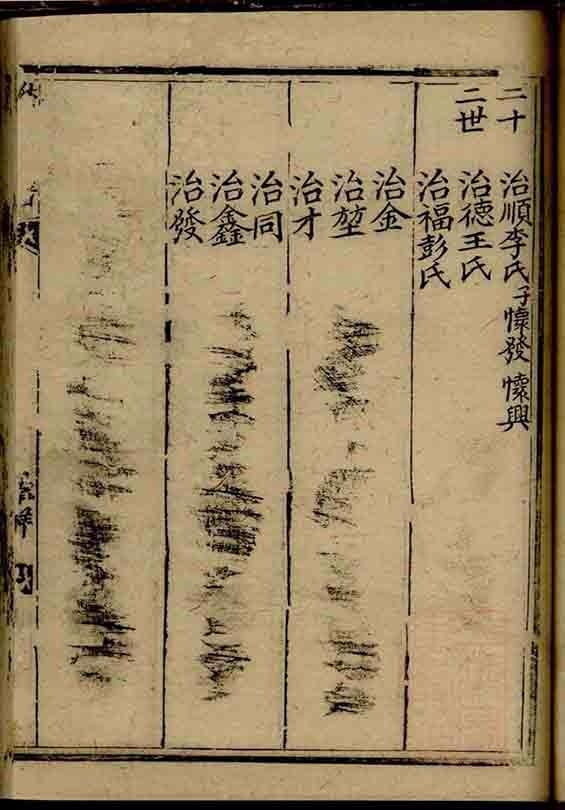 二十
二世
治順李氏子懷發 懷興
治德王氏
治福彭氏
治金
治堃
治才
治同
治鑫
治發